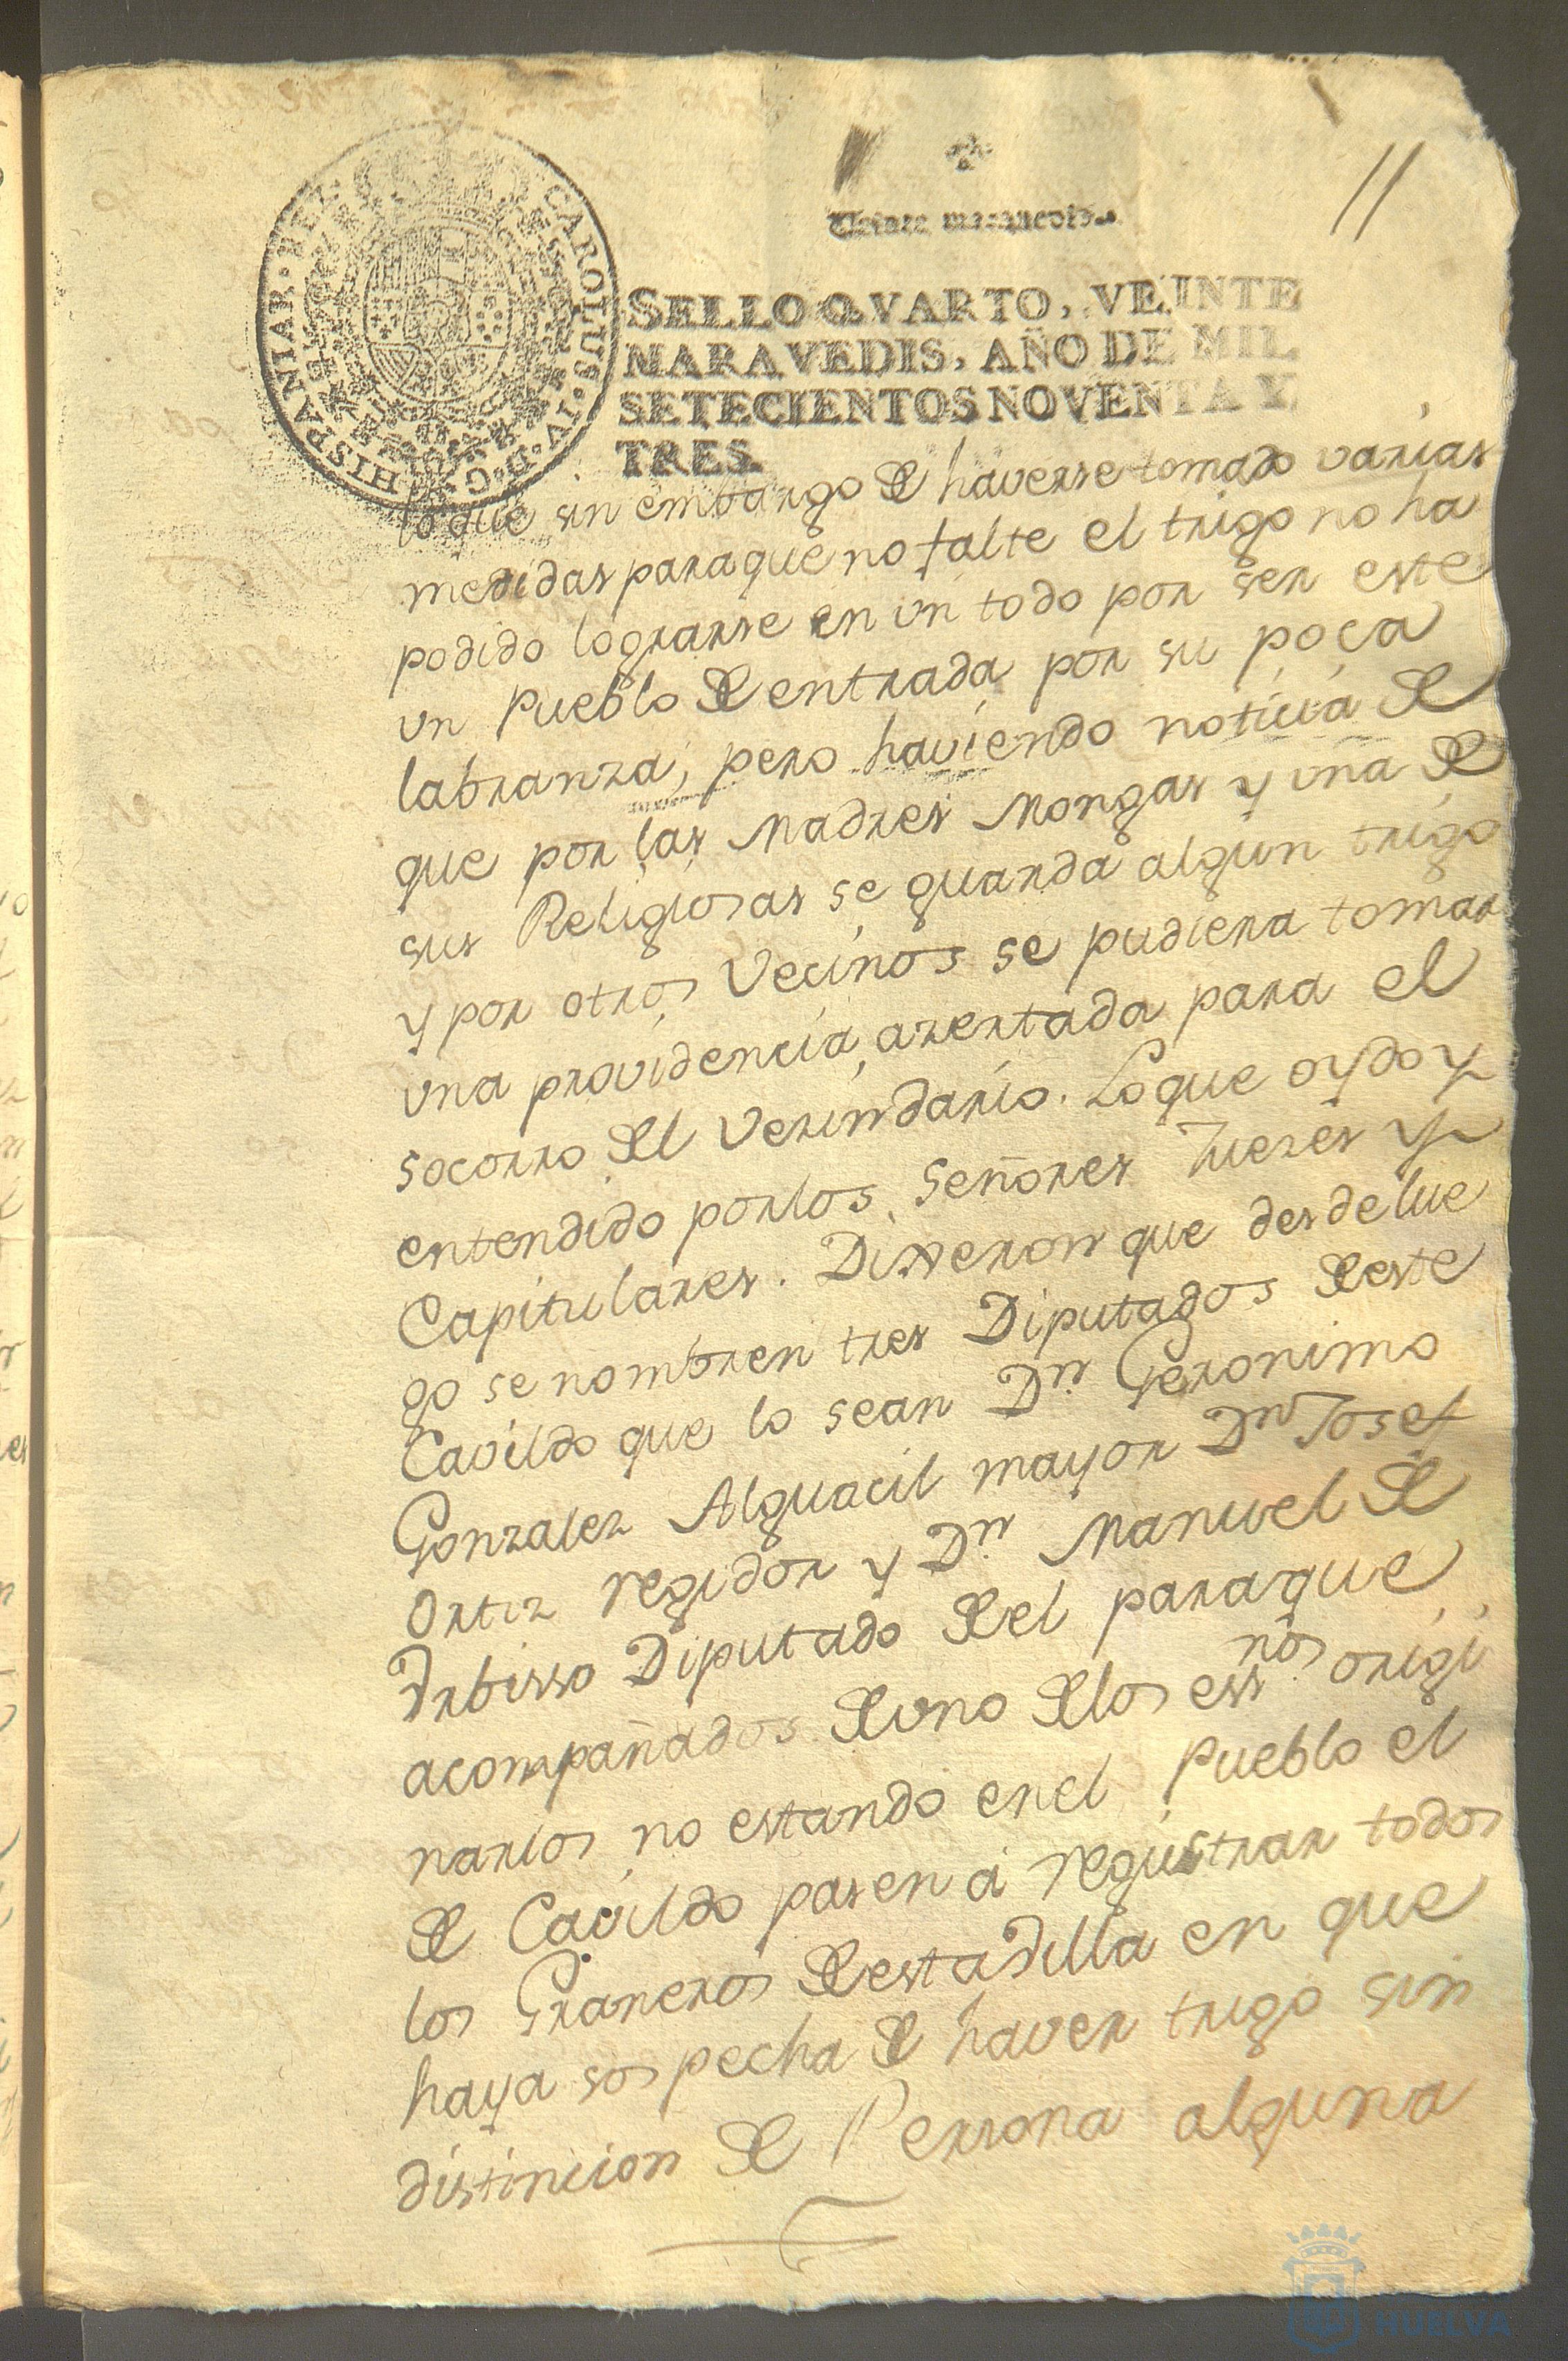 11
Veinte maravedis.
SELLO QVARTO, VEINTE
MARAVEDIS, AÑO DE MIL
SETECIENTOS NOVENTA Y
TRES.
CAROLUS·IV·D·G· HISPANIAR·REX·
lo que sin embargo de haverse tomado varias
medidas paraque no falte el trigo no ha
podido lograrse en un todo por ser este
un Pueblo de entrada por su poca
labranza, pero haviendo noticia de
que por las Madres Mongas y una de
sus Religiosas se guarda algun trigo
y por otros Vecinos se pudiera tomar
una providencia azertada para el
socorro del Vezindario. Loque oydo y
entendido porlos Señores Juezes y
Capitulares. Dixeron que desde lue
go se nombren tres Diputados deeste
Cavildo que lo sean Dn. Geronimo
Gonzalez Alguacil mayor Dn Josef
Ortiz regidor y Dn. Manuel de
Irbisso Diputado del paraque
acompañados deuno delos essnos. origi
narios no estando enel Pueblo el
de Cavildo pasen a registrar todos
los Graneros deestadilla en que
haya sospecha de haver trigo sin
distincion de Persona alguna
HUELVA